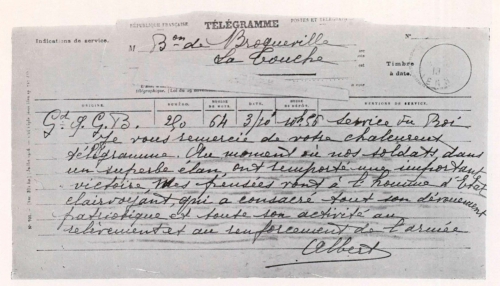 RÉPUBLIQUE FRANÇAISE. TÉLÉGRAMME POSTES ET TÉLÉGRAPHES
Indications de service. N°
M Bon de Broqueville Timbre
La Touche à date.
ORIGINE. NUMÉRO. NOMBRE DE MOTS. DATE. HEURE DE DÉPÔT. MENTIONS DE SERVICE.
Gd q. G. B. 250 64 3/10 Service du Roi
Je vous remercie de votre chaleureux
télégramme. Au moment où nos soldats, dans
un superbe élan, ont remporté une important
victoire, mes pensées vont à l'homme d'Etat
clairvoyant qui a consacré tout son dévouement
patriotique et toute son activité au
relèvement et au renforcement de l'armée
Albert